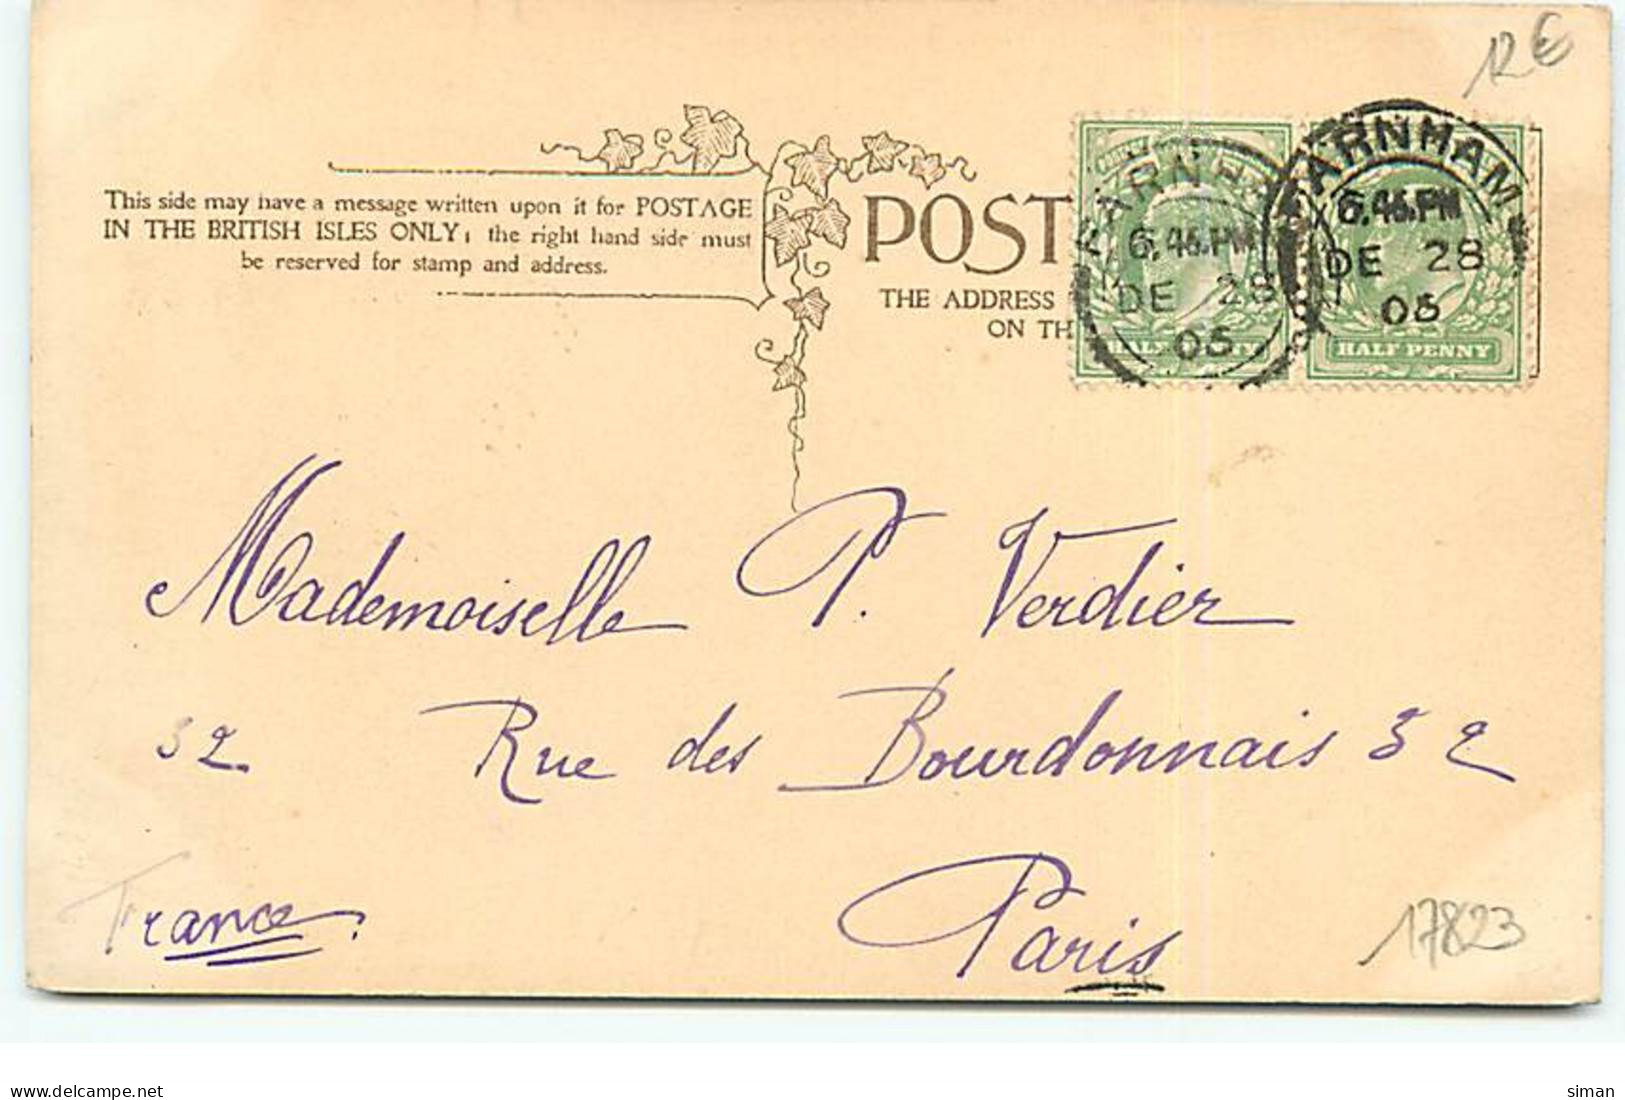 12 €
This side may have a message written upon it for POSTAGE
IN THE BRITISH ISLES ONLY; the right hand side must
be reserved for stamp and address.
POST
THE ADDRESS
ON TH
FARNHA
6.45.PM
DE 28
05
HALF PENNY
FARNHAM
6.45.PM
DE 28
05
HALF PENNY
Mademoiselle P. Verdier
32 Rue des Bourdonnais 32
Paris
France
17823
delcampe.net
siman